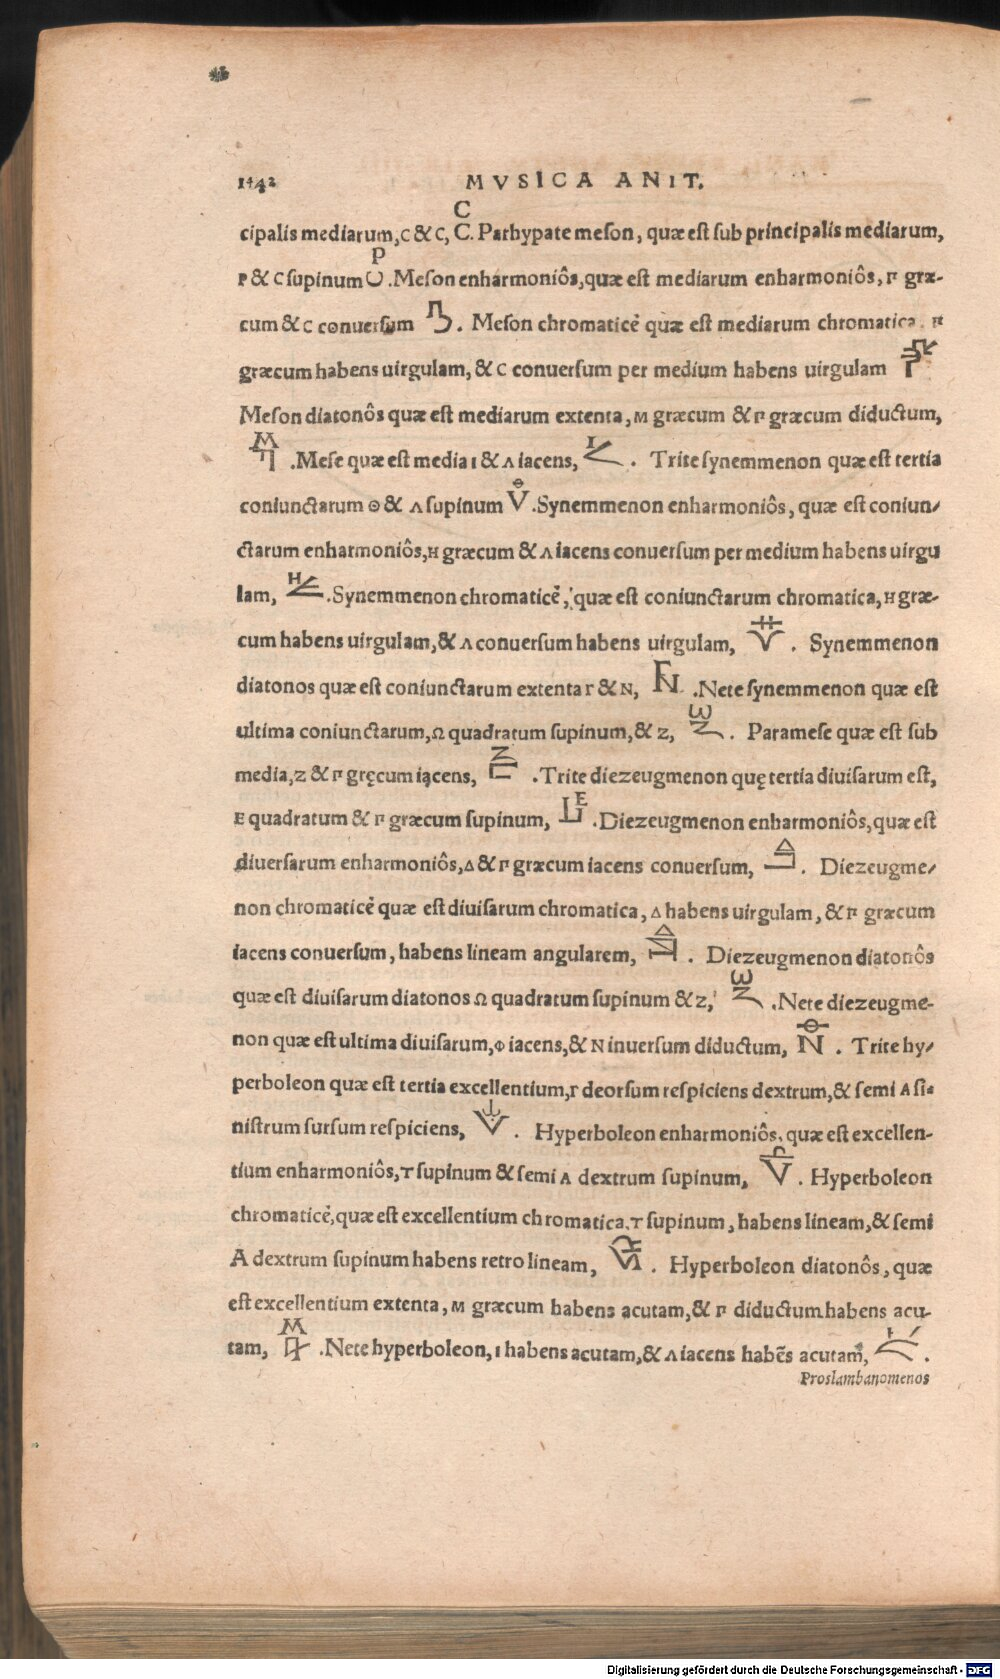 1442 MVSICA ANIT.
cipalis mediarum, C & C, C C. Parhypate meson, quæ est sub principalis mediarum,
P & C supinum P .Meson enharmoniôs,quæ est mediarum enharmoniôs, græ-
cum & C conuersum . Meson chromaticè quæ est mediarum chromatica,
græcum habens uirgulam, & C conuersum per medium habens uirgulam
Meson diatonôs quæ est mediarum extenta, M græcum & græcum diductum,
M .Mese quæ est media I & Λ iacens, I . Trite synemmenon quæ est tertia
coniunctarum Θ & Λ supinum Θ V .Synemmenon enharmoniôs, quæ est coniun-
ctarum enharmoniôs, H græcum & Λ iacens conuersum per medium habens uirgu
lam, H .Synemmenon chromaticè, quæ est coniunctarum chromatica, H græ-
cum habens uirgulam, & Λ conuersum habens uirgulam, . Synemmenon
diatonos quæ est coniunctarum extenta Γ & N, Γ N .Nete synemmenon quæ est
ultima coniunctarum, Ω quadratum supinum, & Z, . Paramese quæ est sub
media, Z & gręcum iącens, Z .Trite diezeugmenon quę tertia diuisarum est,
E quadratum & græcum supinum, E .Diezeugmenon enharmoniôs,quæ est
diuersarum enharmoniôs, Δ & græcum iacens conuersum, Δ . Diezeugme-
non chromaticè quæ est diuisarum chromatica, Δ habens uirgulam, & græcum
iacens conuersum, habens lineam angularem, . Diezeugmenon diatonôs
quæ est diuisarum diatonos Ω quadratum supinum & Z, .Nete diezeugme-
non quæ est ultima diuisarum, Φ iacens, & N inuersum diductum, . Trite hy-
perboleon quæ est tertia excellentium, deorsum respiciens dextrum, & semi A si-
nistrum sursum respiciens, . Hyperboleon enharmoniôs, quæ est excellen-
tium enharmoniôs, T supinum & semi A dextrum supinum, . Hyperboleon
chromaticè, quæ est excellentium chromatica, T supinum, habens lineam, & semi
A dextrum supinum habens retro lineam, . Hyperboleon diatonôs, quæ
est excellentium extenta, M græcum habens acutam, & diductum habens acu-
tam, M .Nete hyperboleon, I habens acutam, & Λ iacens habēs acutam, .
Proslambanomenos
Digitalisierung gefördert durch die Deutsche Forschungsgemeinschaft - DFG